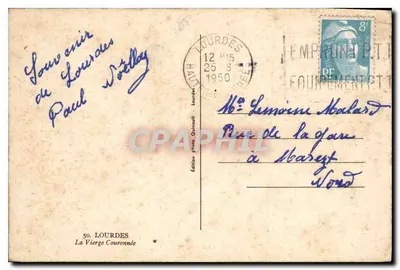 Souvenir
de Lourdes
Paul Noëllay
LOURDES
12 H 15
25-8
1950
HAUTES
EMPRUNT P.T.T
EQUIPEMENT
8F
RF
Me Lemoine Malard
Rue de la gare
à Maretz
Nord
Edition photo
Lourdes
50. LOURDES
La Vierge Couronnée
CPAPHIL